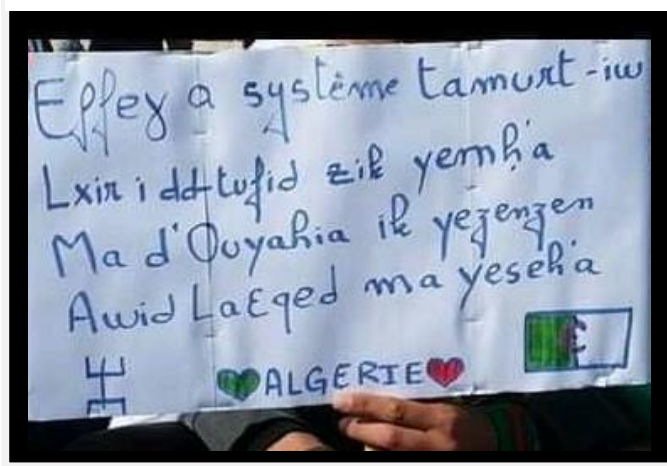 Effeɣ a système tamurt-iw
Lxir i dd-tufid zik yemḥ'a
Ma d'Ouyahia ik yezenzen
Awid Laɛqed ma yeseḥ'a
ⵣ
ALGERIE